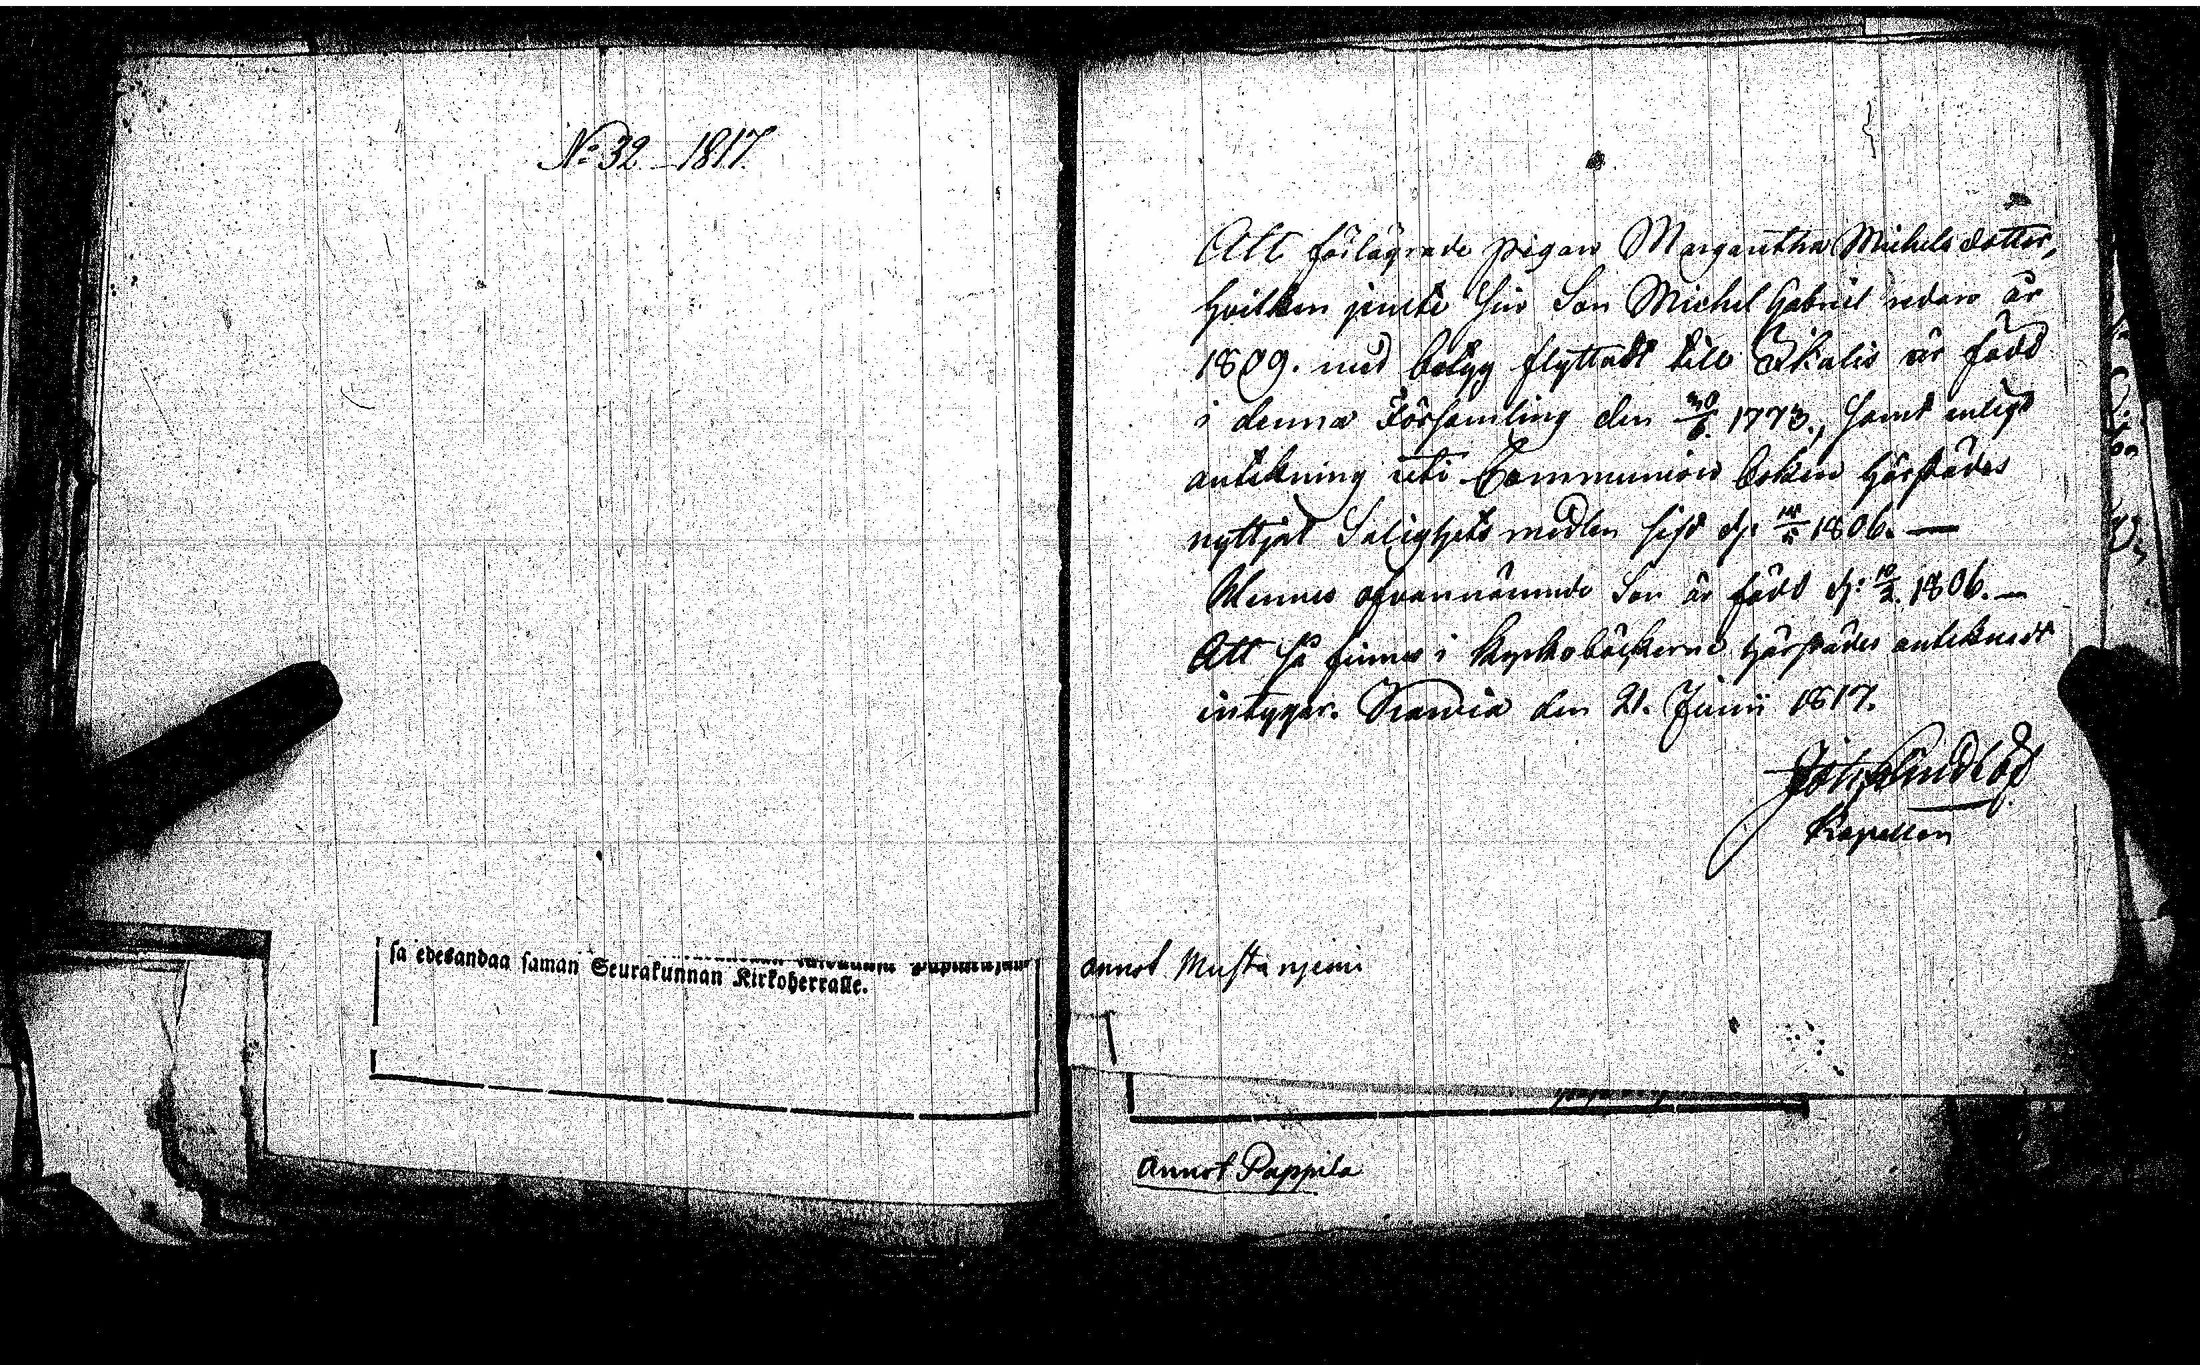 No 32 1817.
sa edesandaa saman Seurakunnan Kirkoherralle.
Att förlägrade pigan Margaretha Michelsdotter,
hvilken jemte sin Son Michel Gabriel redan år
1809. med betyg flyttadt till Ikalis är född
i denna Församling den 1773., samt enligt
antekning uti Communion boken härstädes
nyttjat Salighets medlen sist d: 1806. —
Hennes ofvannämnde Son är född d: 10/2. 1806. —
Att så finnes i kyrkoböckerne härstädes anteknadt
intygar. den 21. Junii 1817.
Joh Lindlöf
Kapellan
annot Mustaniemi
annot Pappila